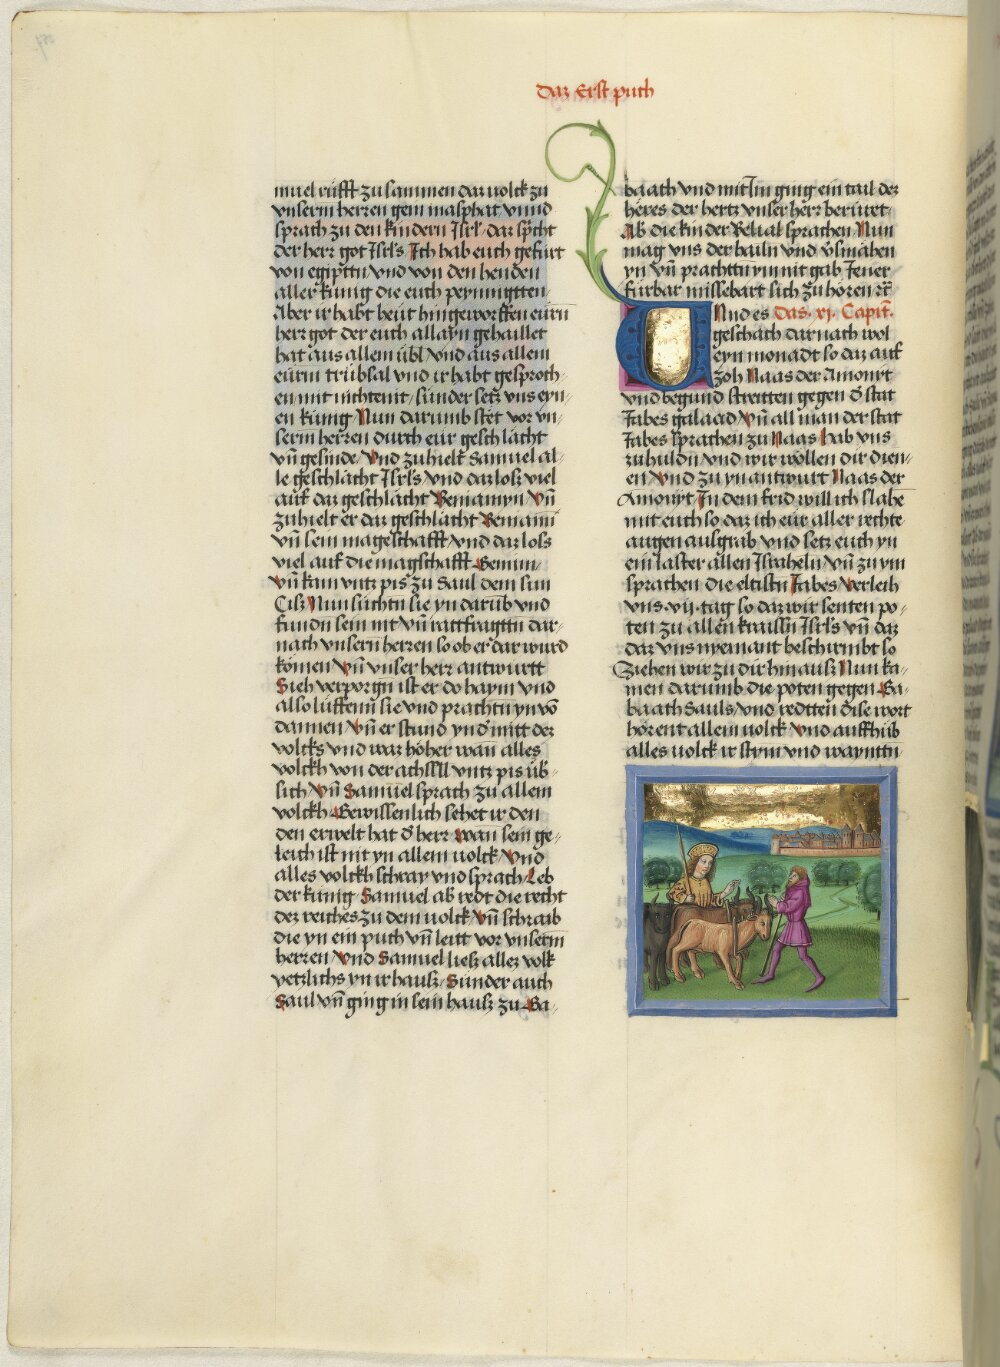 Daz Erst puch
muel rüfft zu sammen daz volck zu
vnserm herren gem masphat vnnd
sprach zu den kindern Isrl· daz spͤcht
der herr got Isrl's Ich hab euch gefürt
von egiptn vnd von den henden
aller künig die euch peynnigtten·
Aber ir habt heut hingeworffen eurn
herr got der euch allayn gehaillet
hat aus allem übl vnd aus allem
eürm trübsal vnd ir habt gesproch⸗
en mit nichtenit, sünder setz vns eyn⸗
en künig Nun darumb stet vor vn⸗
serm herren durch eür geschlächt
vn̄ gesinde, Vnd zuhielt Samuel al⸗
le geschlächt Isrl's vnd daz loſz viel
auf daz geschlächt Beniamyn Vn̄
zuhielt er daz geschlächt Beniamī
vn̄ sein mageschafft vnd daz loſs
viel auf die magschafft
Vn̄ kam vntz pis zu Saul dem sun
Ciſz Nun süchtn sie yn darüb vnd
fundn sein nit vn̄ rattfragttn dar⸗
nach vnsern herren so ob er dar wurd
kömen Vn̄ vnser herr antwurtt
Sich verporgn ist er do haym vnd
also lüffenn sie vnd prachtn yn vō
dannen Vn̄ er stund yn d' mitt der
volcks vnd war höher wan alles
volckh von der achsll vntz pis üb'⸗
sich, Vn̄ Samuel sprach zu allem
volckh Gewissenlich sehet ir den
den erwelt hat d' herr Wan sein ge⸗
leich ist nit yn allem volck Vnd
alles volckh schray vnd sprach Leb
der künig Samuel ab redt die recht
dez reiches zu dem volck Vn̄ schraib
die yn ein puch vn̄ leitt vor vnserm
herren Vnd Samuel lieſz allez volk
yetzlichs yn ir hauſz Sünder auch
Saul vn̄ ging in sein hauſz zu Ga⸗
baath vnd mit Im ging ein tail dez
heres der hertz vnser herr berüret·
Ab die kinder Belial sprachen Nun
mag vns der hailn vnd v'smähen
yn vn̄ prachttn ym nit gab Jener
fürbar missebart sich zu hören rͤc
Vnd es Das xj Capit·
geschach darnach wol
eyn monadt so daz auf
zoh Naas der Amonyt
vnd begund streitten gegen d' stat
Iabes galaad Vn̄ all man der stat
Iabes sprachen zu Naas hab vns
zu huldn vnd wir wöllen dir dien⸗
en Vnd zu yn antwurt Naas der
Amonyt In dem frid will ich slahē
mit euch so daz ich eür aller rechte
augen ausgrab vnd setz euch yn
ein laster allen Israheln Vn̄ zu ym
sprachen die eltistn Iabes Verleih
vns vij· tag so daz wir senten po⸗
ten zu allen kraissn Isrl's vn̄ daz
daz vns nyemant beschirmbt so
Ziehen wir zu dir hinauſz Nun ka⸗
men darumb die poten gegen Ga⸗
baath Sauls vnd redtten dise wort
hörent allem volck Vnd auffhüb
alles volck ir stym vnd wayntn